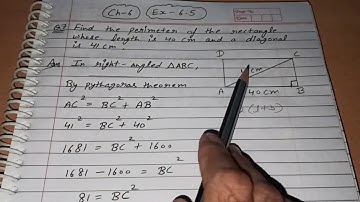 Ch-6 Ex-6.5
Q7 Find the perimeter of the rectangle
whose length is 40 cm and a diagonal
is 41 cm
Ans In right-angled ΔABC,
By pythagoras theorem
AC² = BC² + AB²
41² = BC² + 40²
1681 = BC² + 1600
1681 - 1600 = BC²
81 = BC²
D C
cm
A 40cm B